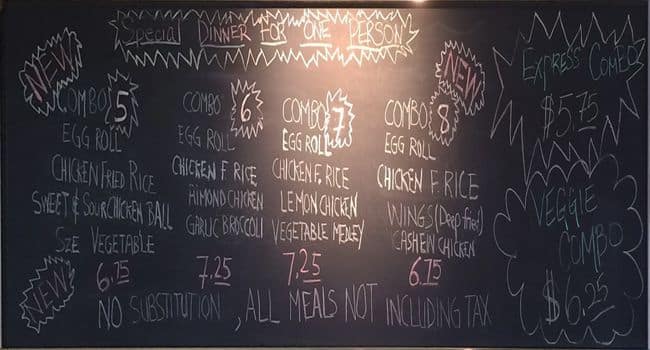 Special DINNER FOR ONE PERSON
NEW
COMBO 5
EGG ROLL
CHICKEN FRIED RICE
SWEET & SOUR CHICKEN BALL
SZE VEGETABLE
6.75
NEW
COMBO 6
EGG ROLL
CHICKEN F. RICE
ALMOND CHICKEN
GARLIC BROCCOLI
7.25
COMBO 7
EGG ROLL
CHICKEN F. RICE
LEMON CHICKEN
VEGETABLE MEDLEY
7.25
NEW
COMBO 8
EGG ROLL
CHICKEN F. RICE
WINGS (Deep fried)
CASHEW CHICKEN
6.75
NO SUBSTITUTION, ALL MEALS NOT INCLUDING TAX
EXPRESS COMBO
$5.75
VEGGIE
COMBO
$6.25